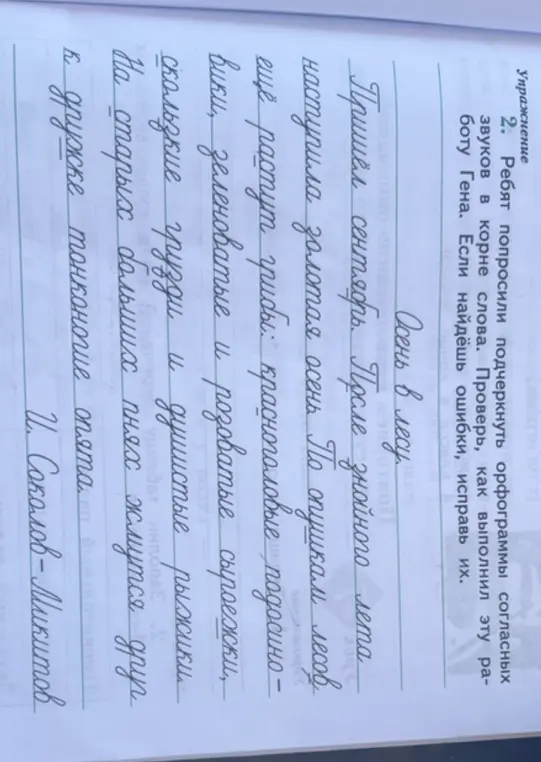 Упражнение
2. Ребят попросили подчеркнуть орфограммы согласных
звуков в корне слова. Проверь, как выполнил эту ра-
боту Гена. Если найдёшь ошибки, исправь их.
Осень в лесу.
Пришёл сентябрь. После знойного лета
наступила золотая осень. По опушкам лесов
ещё растут грибы: красноголовые подосино-
вики, зеленоватые и розоватые сыроежки,
скользкие грузди и душистые рыжики.
На старых больших пнях жмутся друг
к дружке тонконогие опята.
И. Соколов-Микитов